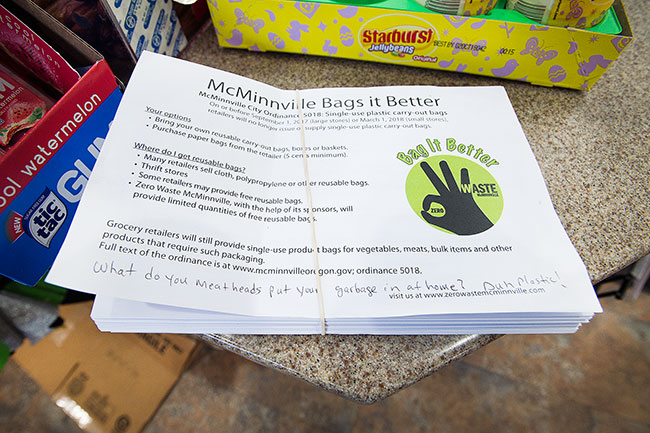 Starburst
Jellybeans
Original
McMinnville Bags it Better
McMinnville City Ordinance 5018: Single-use plastic carry-out bags
On or before September 1, 2017 (large stores) or March 1, 2018 (small stores),
retailers will no longer issue or supply single-use plastic carry-out bags
Your options
• Bring your own reusable carry-out bags, boxes or baskets.
• Purchase paper bags from the retailer (5 cents minimum).
Where do I get reusable bags?
• Many retailers sell cloth, polypropylene or other reusable bags.
• Thrift stores
• Some retailers may provide free reusable bags.
• Zero Waste McMinnville, with the help of its sponsors, will
provide limited quantities of free reusable bags.
Bag it Better
ZERO
WASTE
MCMINNVILLE
Grocery retailers will still provide single-use product bags for vegetables, meats, bulk items and other
products that require such packaging.
Full text of the ordinance is at www.mcminnvilleoregon.gov; ordinance 5018.
What do you meatheads put your garbage in at home? Duh, plastic!
visit us at www.zerowastemcminnville.com
ool watermelon
NEW
tic
tac
GUM